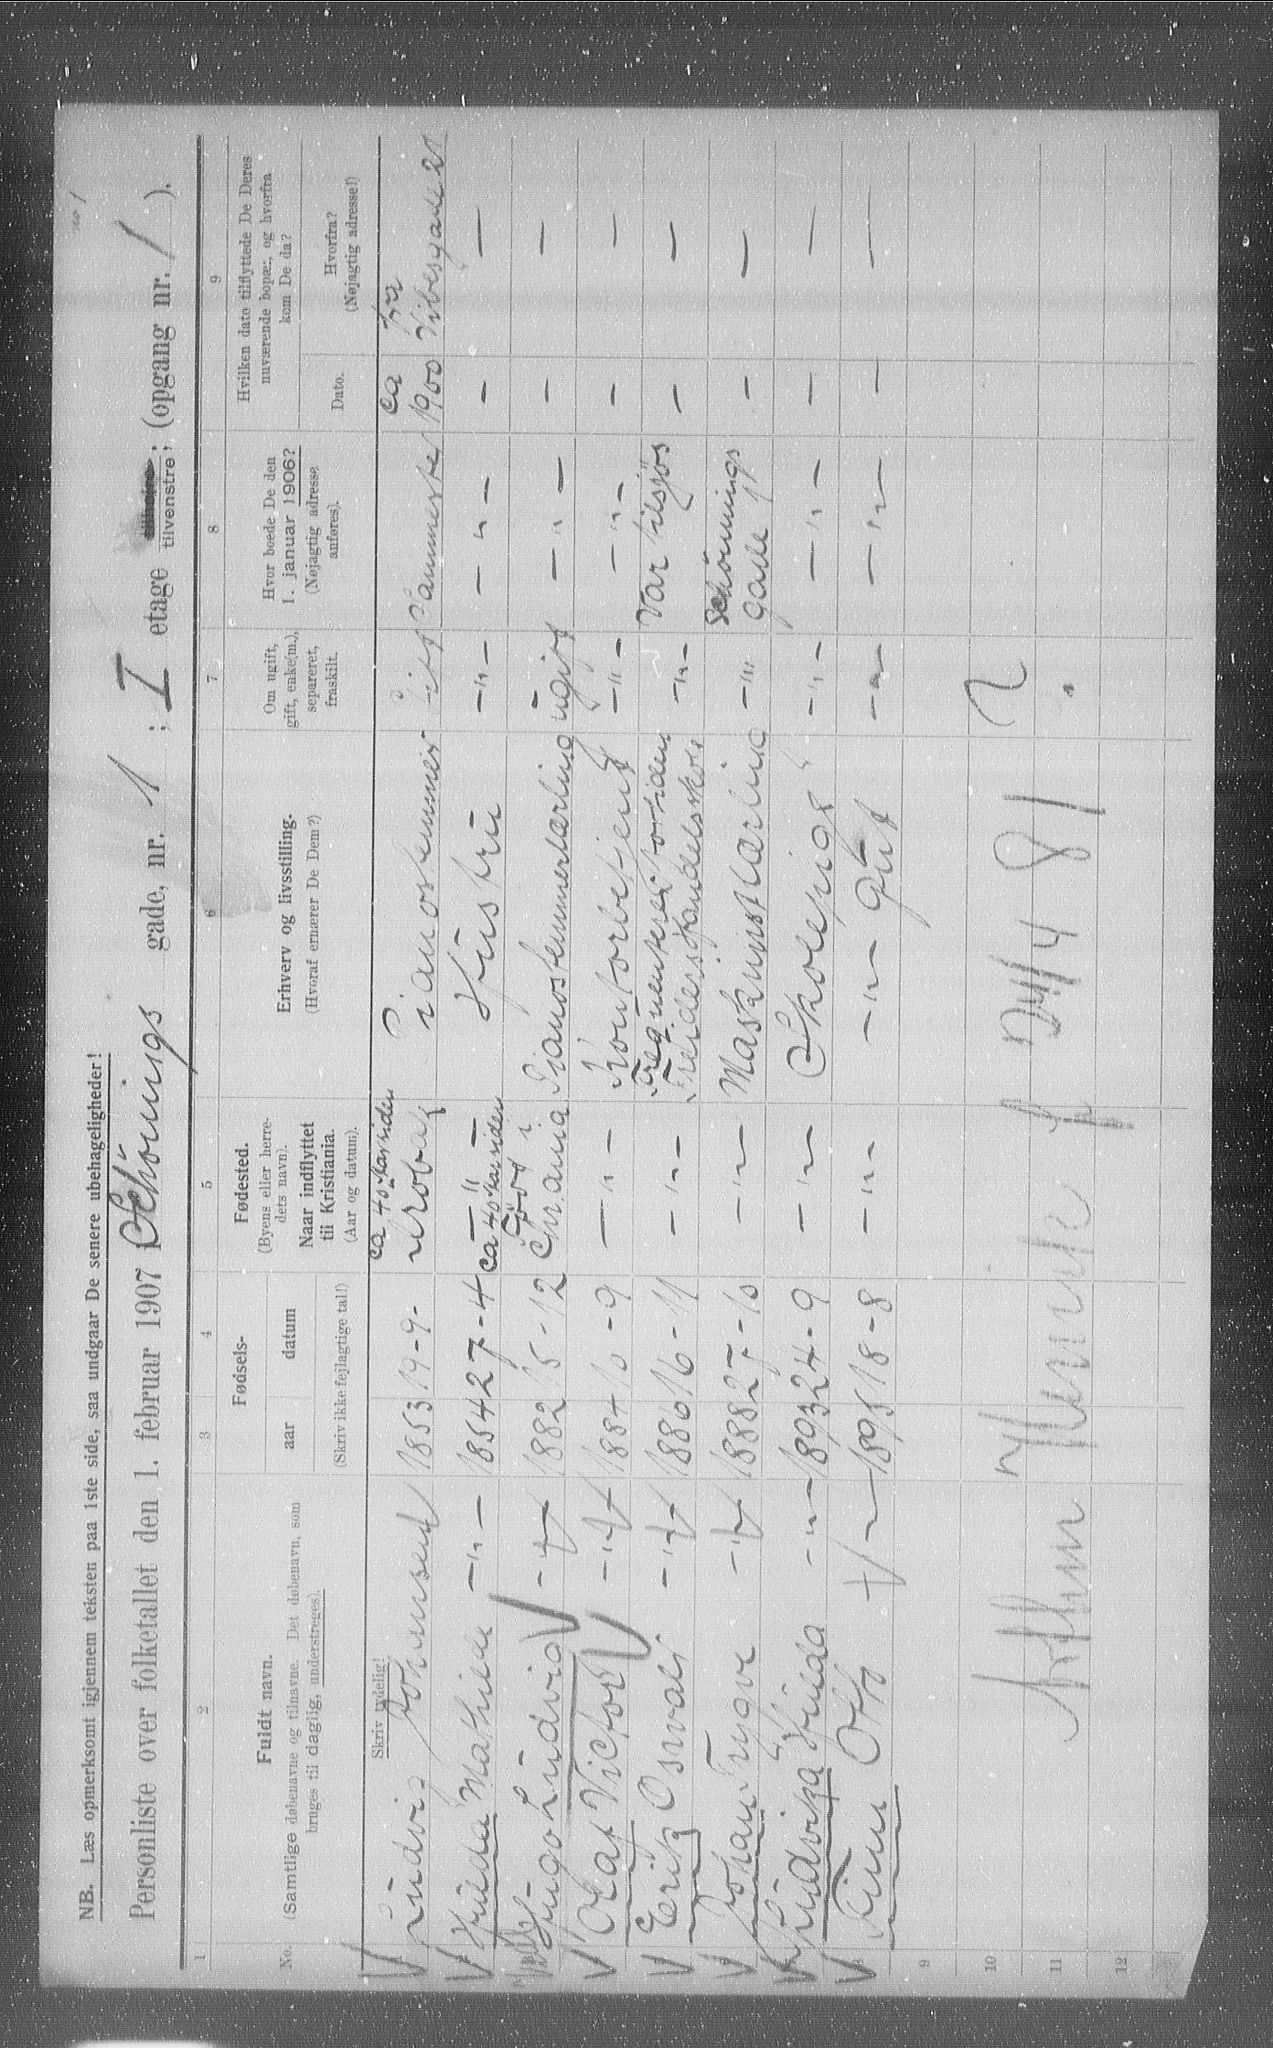 NB. Læs opmerksomt igjennem teksten paa 1ste side, saa undgaar De senere ubehageligheder!
Personliste over folketallet den 1. februar 1907 i Schönings gade, nr. 1 ; I etage tilvenstre; (opgang nr. 1 ).
1 2 3 4 5 6 7 8 9
No.
Fuldt navn.
(Samtlige døbenavne og tilnavne. Det døbenavn, som
bruges til daglig, understreges).
Skriv tydelig!
Fødsels-
aar datum
(Skriv ikke fejlagtige tal!)
Fødested.
(Byens eller herre-
dets navn).
Naar indflyttet
til Kristiania.
(Aar og datum).
Erhverv og livsstilling.
(Hvoraf ernærer De Dem?)
Om ugift,
gift, enke(m.),
separeret,
fraskilt.
Hvor boede De den
1. januar 1906?
(Nøjagtig adresse
anføres).
Hvilken dato tilflyttede De Deres
nuværende bopæl, og hvorfra
kom De da?
Dato.
Hvorfra?
(Nøjagtig adresse!)
ca 40 Aar siden ca fra
Ludvig Johansen 1853 19-9- Drøbak Pianostemmer Gift 1900 Vibesgade 21
Hulda Mathilde -"- 1854 27-4 -"- Hustru -"- -"- - -
ca 40 Aar siden
Född i
Hugo Ludvig -"- 1882 15-12 Chr.ania Pianostemmerlærling ugift -"- - -
Olaf Victor -"- 1884 10-9 -"- Kontorbetjent -"- -"- - -
Erik Osvald -"- 1886 16-11 -"- Frequenterer for tiden -"- Var tilsjøs - -
Handelsskole
Johan Trygve -"- 1888 27-10 -"- Maskinistlærling -"- Schönnings - -
gade
Ludvika Hulda -"- 1893 24-9 -"- Skolepige -"- -"- - -
Finn Otto -"- 1895 18-8 -"- -"- Gut -"- -"- - -
9
10
11
12
Arthur 24/4 81 ?